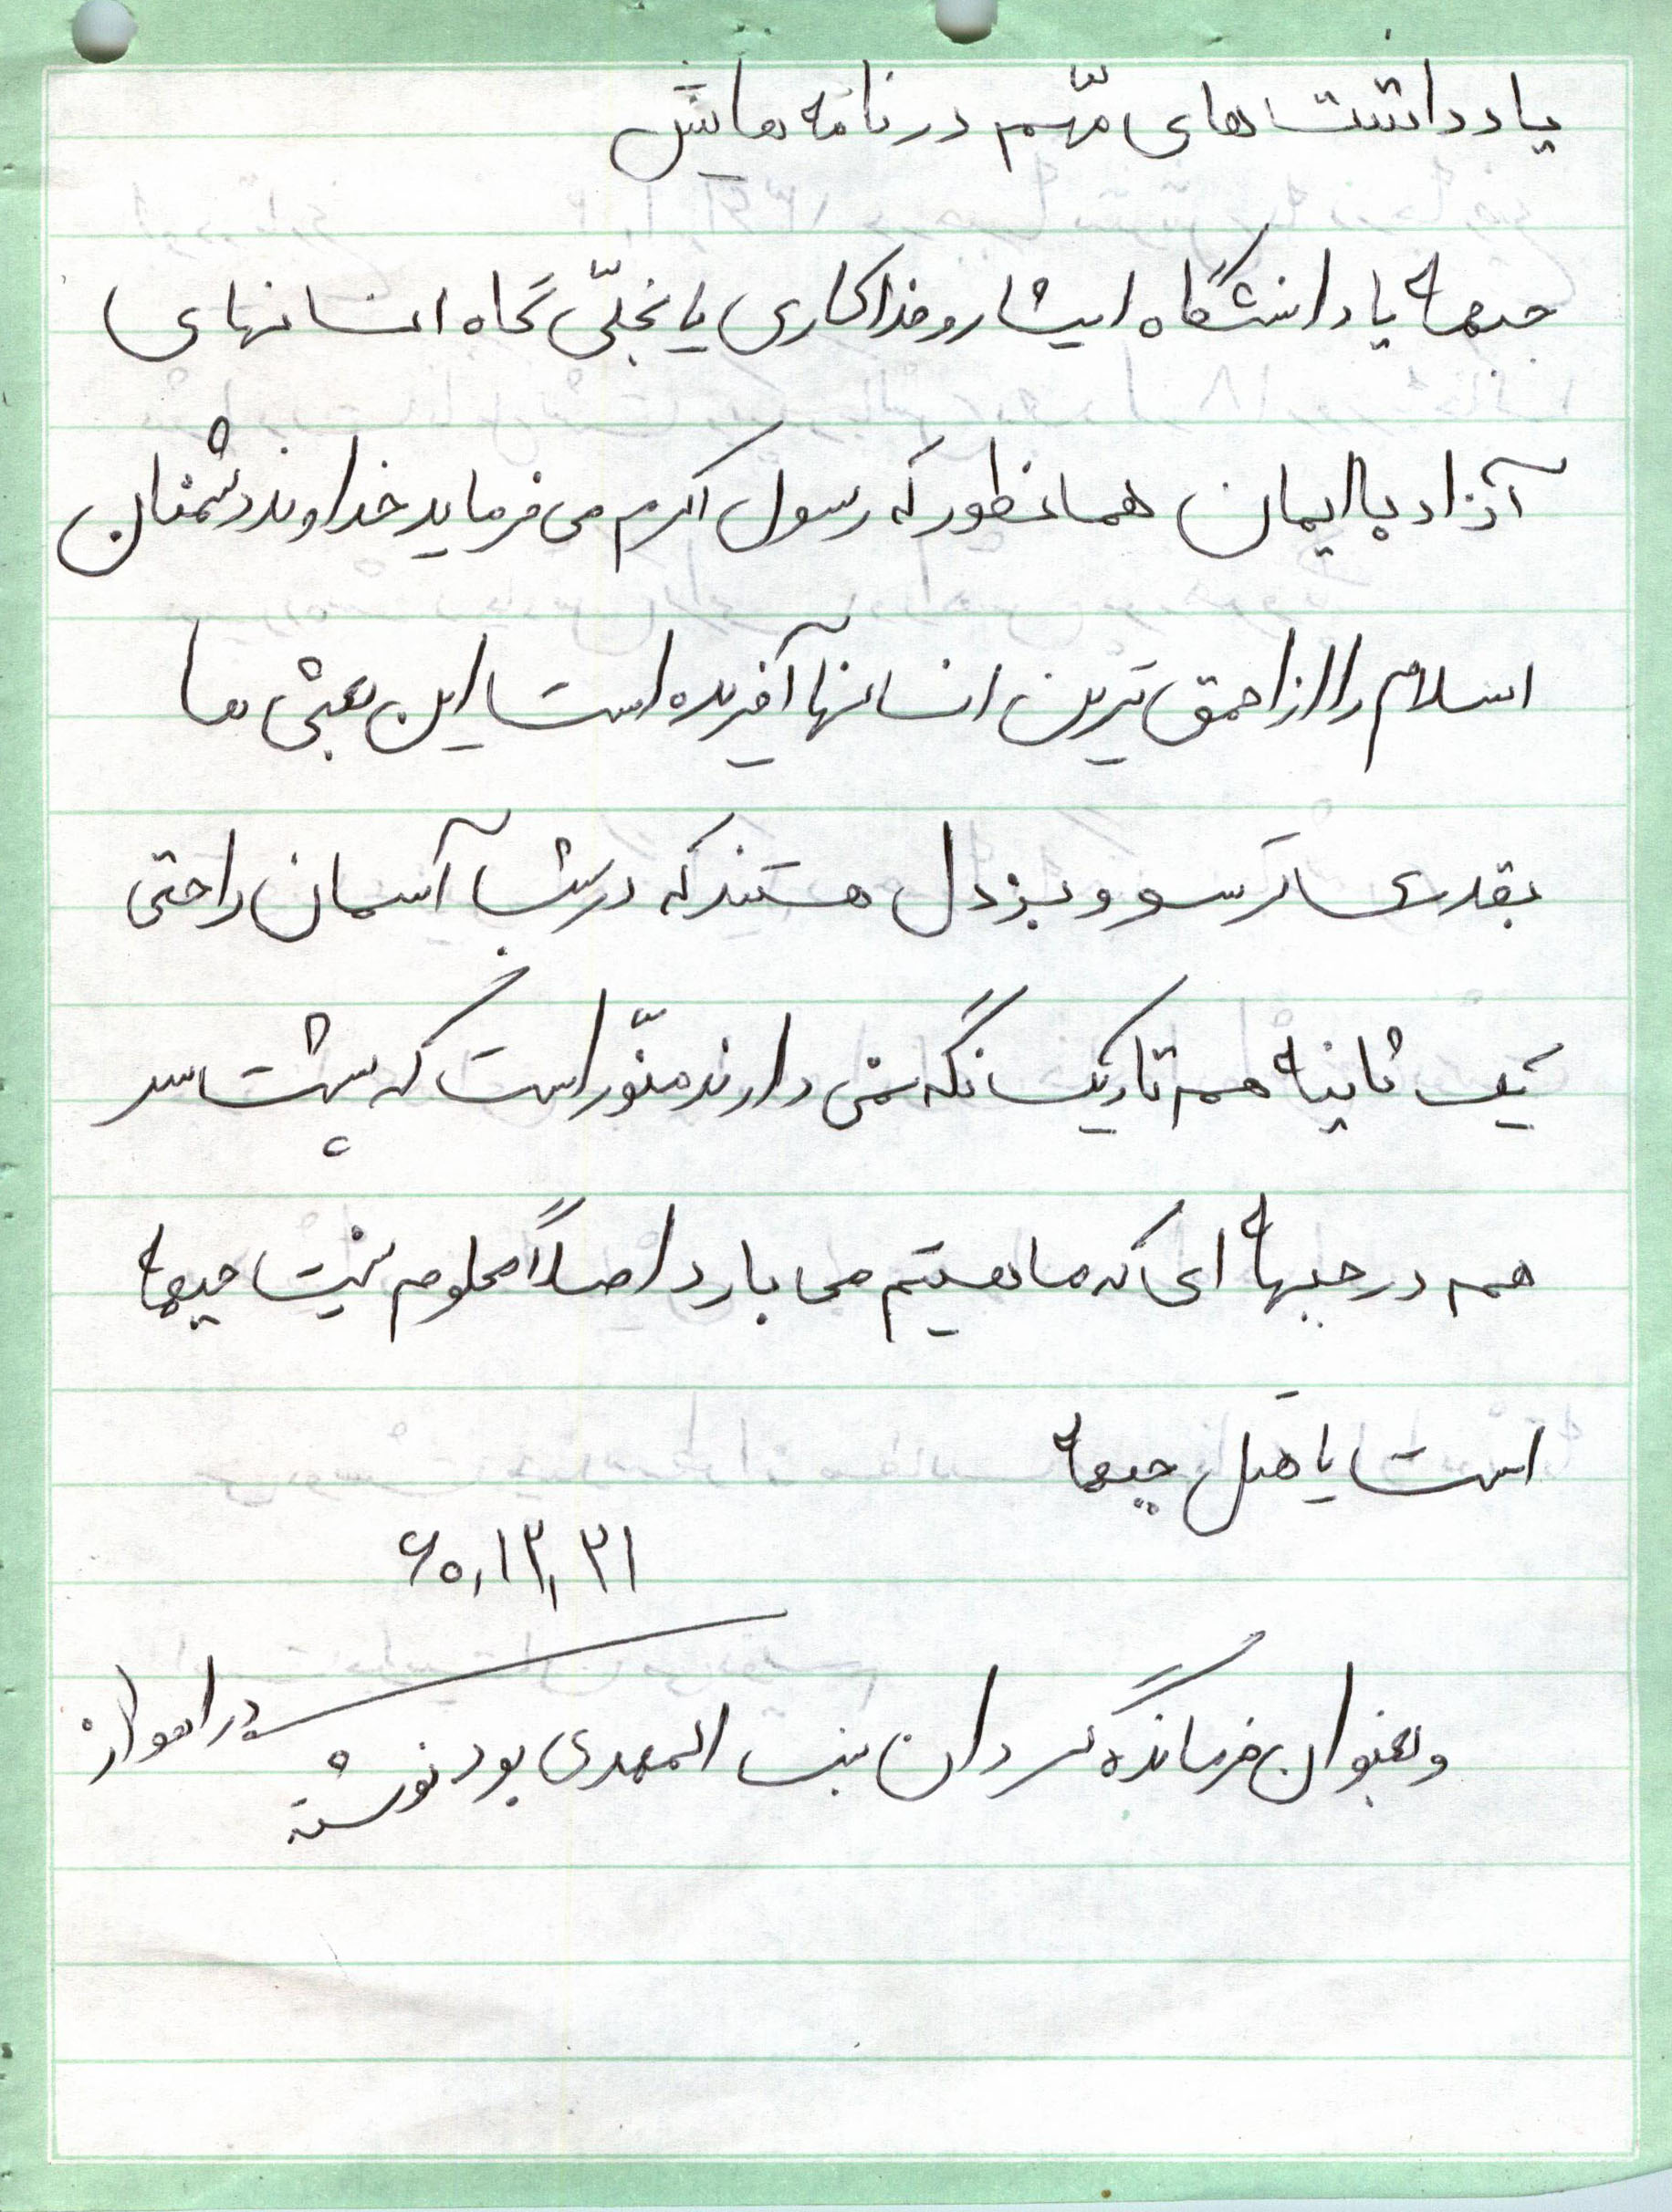 یادداشت های مهّم در نامه هایش
جبهه یا دانشگاه ایثار و فداکاری یا تجلّی گاه انسانهای
آزاد با ایمان همانطور که رسول اکرم می فرماید خداوند دشمنان
اسلام را از احمق ترین انسانها آفریده است این بعثی ها
بقدری ترسو و بزدل هستند که در شب آسمان را حتی
یک ثانیه هم تاریک نگه نمی دارند منّور است که پشت سر
هم در جبهه ای که ما هستیم می بارد اصلاً معلوم نیست جبهه
است یا جبهه
۶۰،۱۲،۲۱
و بعنوان فرمانده گردان المهدی بود نوشته
در اهواز